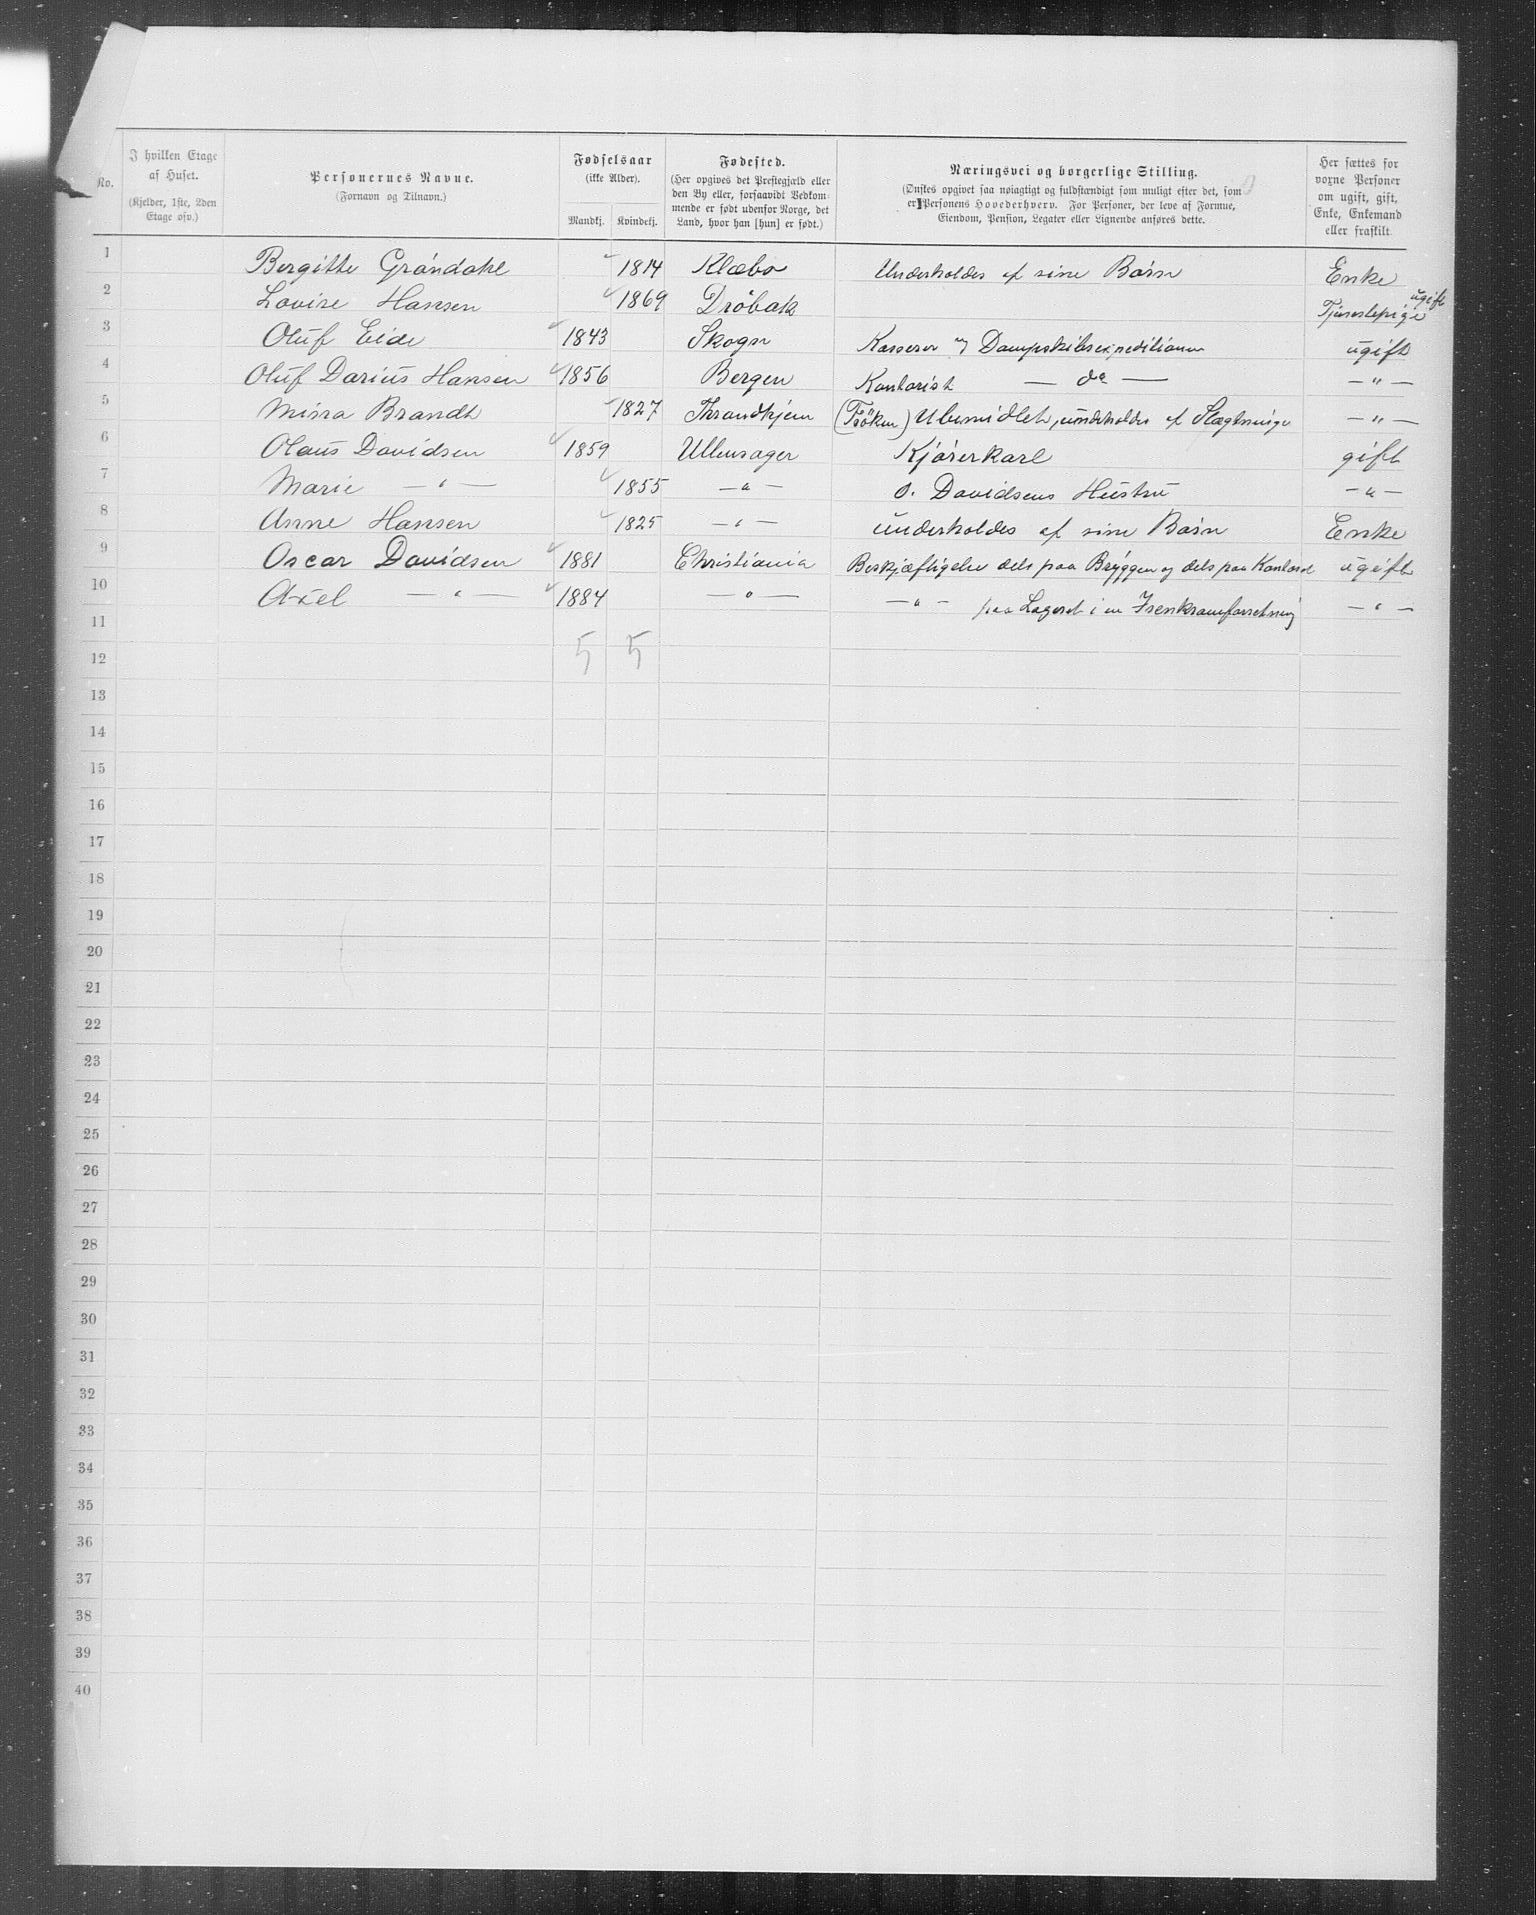 No. | I hvilken Etage af Huset. (Kjelder, 1ste, 2den Etage osv.) | Personernes Navne. (Fornavn og Tilnavn.) | Fødselsaar (ikke Alder). Mandkj. | Kvindekj. | Fødested. (Her opgives det Prestegjæld eller den By eller, forsaavidt Vedkommende er født udenfor Norge, det Land, hvor han [hun] er født.) | Næringsvei og borgerlige Stilling. (Ønskes opgivet saa nøiagtigt og fuldstændigt som muligt efter det, som er Personens Hovederhverv. For Personer, der leve af Formue, Eiendom, Pension, Legater eller Lignende anføres dette. | Her sættes for vorne Personer om ugift, gift, Enke, Enkemand eller fraskilt.
1 Bergitte Gröndahl 1814 Klæbo Underholdes af sine Børn Enke
2 Lovise Hansen 1869 Dröbak Tjenestepige ugift
3 Oluf Eide 1843 Skogn Kasserer v/ Dampskibsexpeditionen ugift
4 Oluf Darius Hansen 1856 Bergen Kontorist — do — — " —
5 Mina Brandt 1827 Throndhjem (Fröken) Ubemidlet, underholdes af Slægtninge — " —
6 Olaus Davidsen 1859 Ullensager Kjörerkarl gift
7 Marie — " — 1855 — " — O. Davidsens Hustru — " —
8 Anne Hansen 1825 — " — underholdes af sine Børn Enke
9 Oscar Davidsen 1881 Christiania Beskjæftigelse dels paa Bryggen og dels paa Kontoret ugift
10 Axel — " — 1884 — " — — " — paa Lageret i en Isenkramforretning — " —
11 5 5
12
13
14
15
16
17
18
19
20
21
22
23
24
25
26
27
28
29
30
31
32
33
34
35
36
37
38
39
40